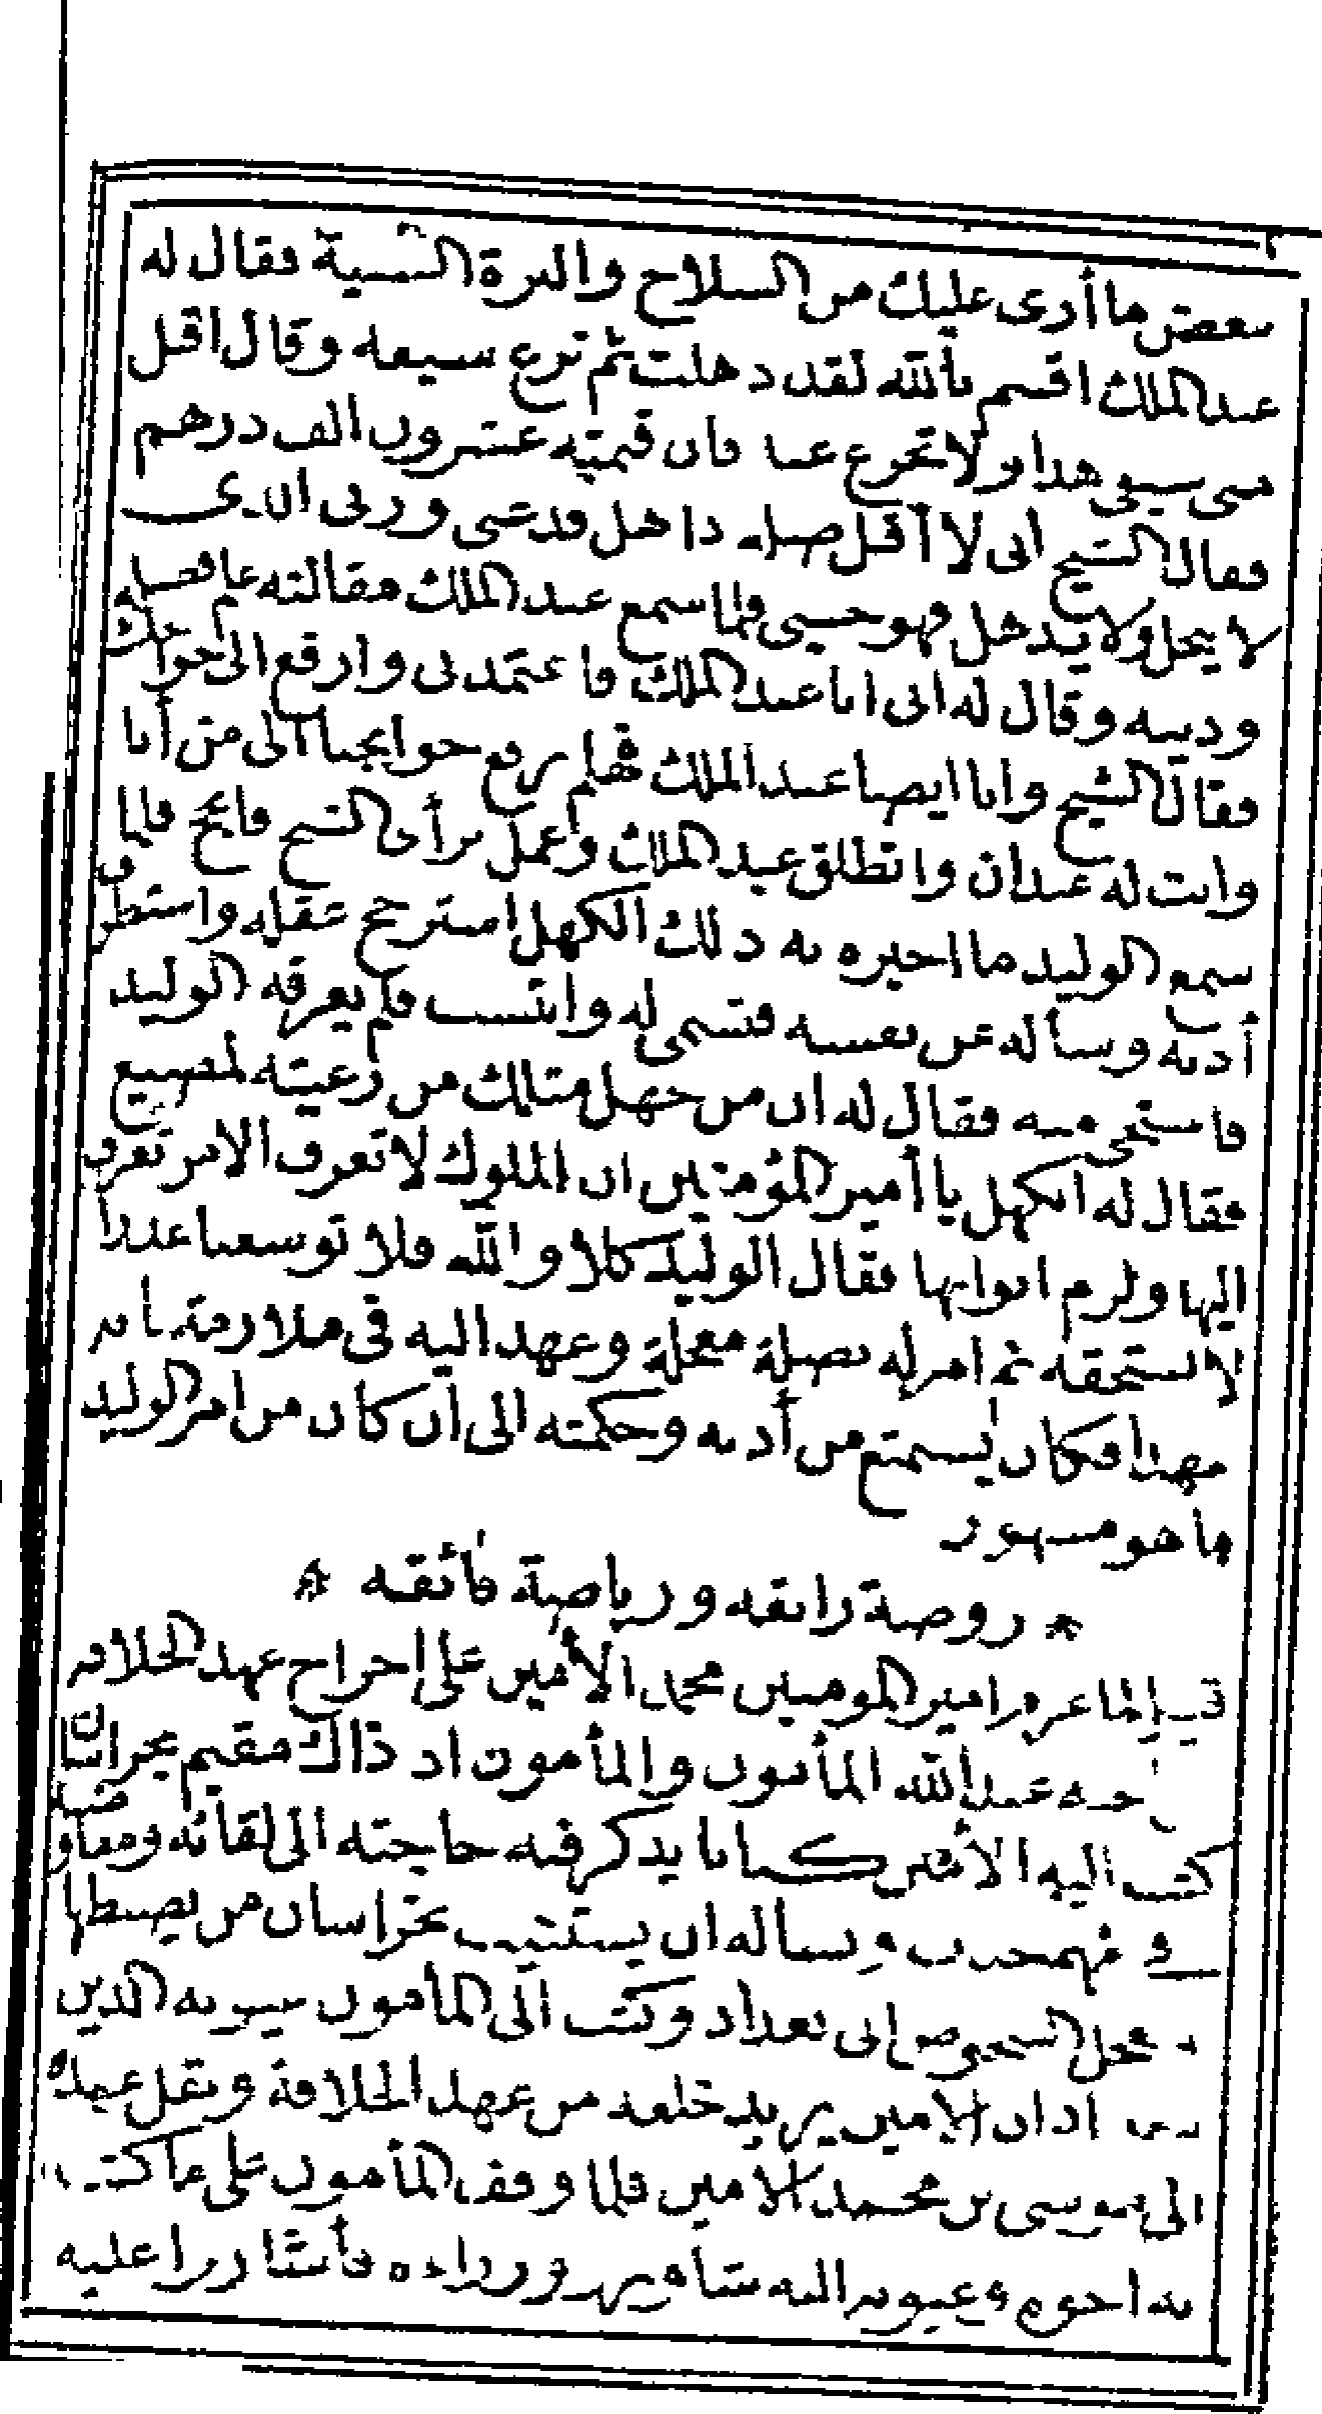 بعض ما أرى عليك من السلاح والبزة السنية فقال له
عبد الملك اقسم بالله لقد دهلت ثم نزع سيفه وقال اقبل
منى سيفى هذا ولا تخرج عنا فان قيمته عشرون الف درهم
فقال الشيخ انى لا أقبل صلة ذاهل فدعنى وربى الذى
لا يبخل ولا يذهل فهو حسبى فلما سمع عبد الملك مقالته علم فضله
ودينه وقال له انى انا عبد الملك فاعتمدنى وارفع الى حوائجك
فقال الشيخ وانا ايضا عبد الملك فهلم نرفع حوايجنا الى من أنا
وانت له عبدان وانطلق عبد الملك وعمل برأى الشيخ فانجح فلما
سمع الوليد ما اخبره به ذلك الكهل استرجح عقله واستظرف
أدبه وسأله عن نفسه فتسمى له وانتسب فلم يعرفه الوليد
فاستحى منه فقال له ان من جهل مثلك من رعيته لمضيع
فقال له الكهل يا أمير المؤمنين ان الملوك لا تعرف الا من تعرف
اليها ولزم ابوابها فقال الوليد كلا والله فلا توسعنا عذرا
لا نستحقه ثم امر له بصلة معجلة وعهد اليه فى ملازمة بابه
مهذا فكان يستمتع من أدبه وحكمته الى ان كان من امر الوليد
ما هو مشهور
* روضة رائقه ورياضة فائقه *
قيل لما عزم امير المومنين محمد الأمين على اخراج عهد الخلافه
عن اخيه عبد الله المأمون والمأمون اذ ذاك مقيم بخراسان
كتب اليه الأمين كتابا يذكر فيه حاجته الى لقائه
فى مهم حدث وسأله ان يستنيب بخراسان من يضبطها
الى بغداد وكتب الى المأمون عيونه الذين
ان الامين يريد خلعه من عهد الخلافة ونقل عهده
الى موسى بن محمد الامين فلما وقف المأمون على ما كتب
به اخوه وعيونه اليه شاور وزراءه فأشاروا عليه